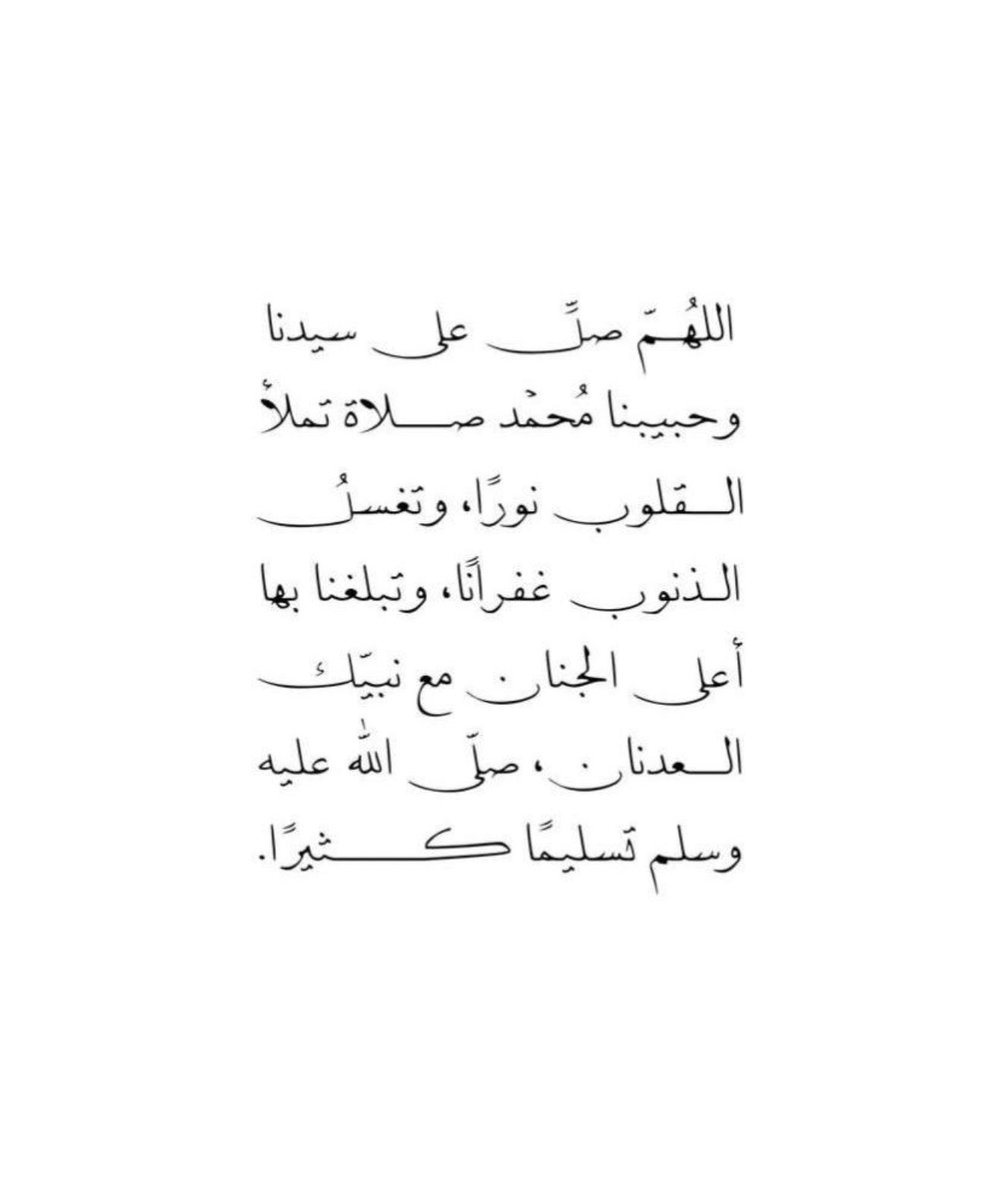 اللهُمّ صلِّ على سيدنا
وحبيبنا مُحمّد صلاة تملأ
القلوب نورًا، وتغسلُ
الذنوب غفرانًا، وتبلغنا بها
أعلى الجنان مع نبيّك
العدنان، صلّى الله عليه
وسلم تسليمًا كثيرًا.